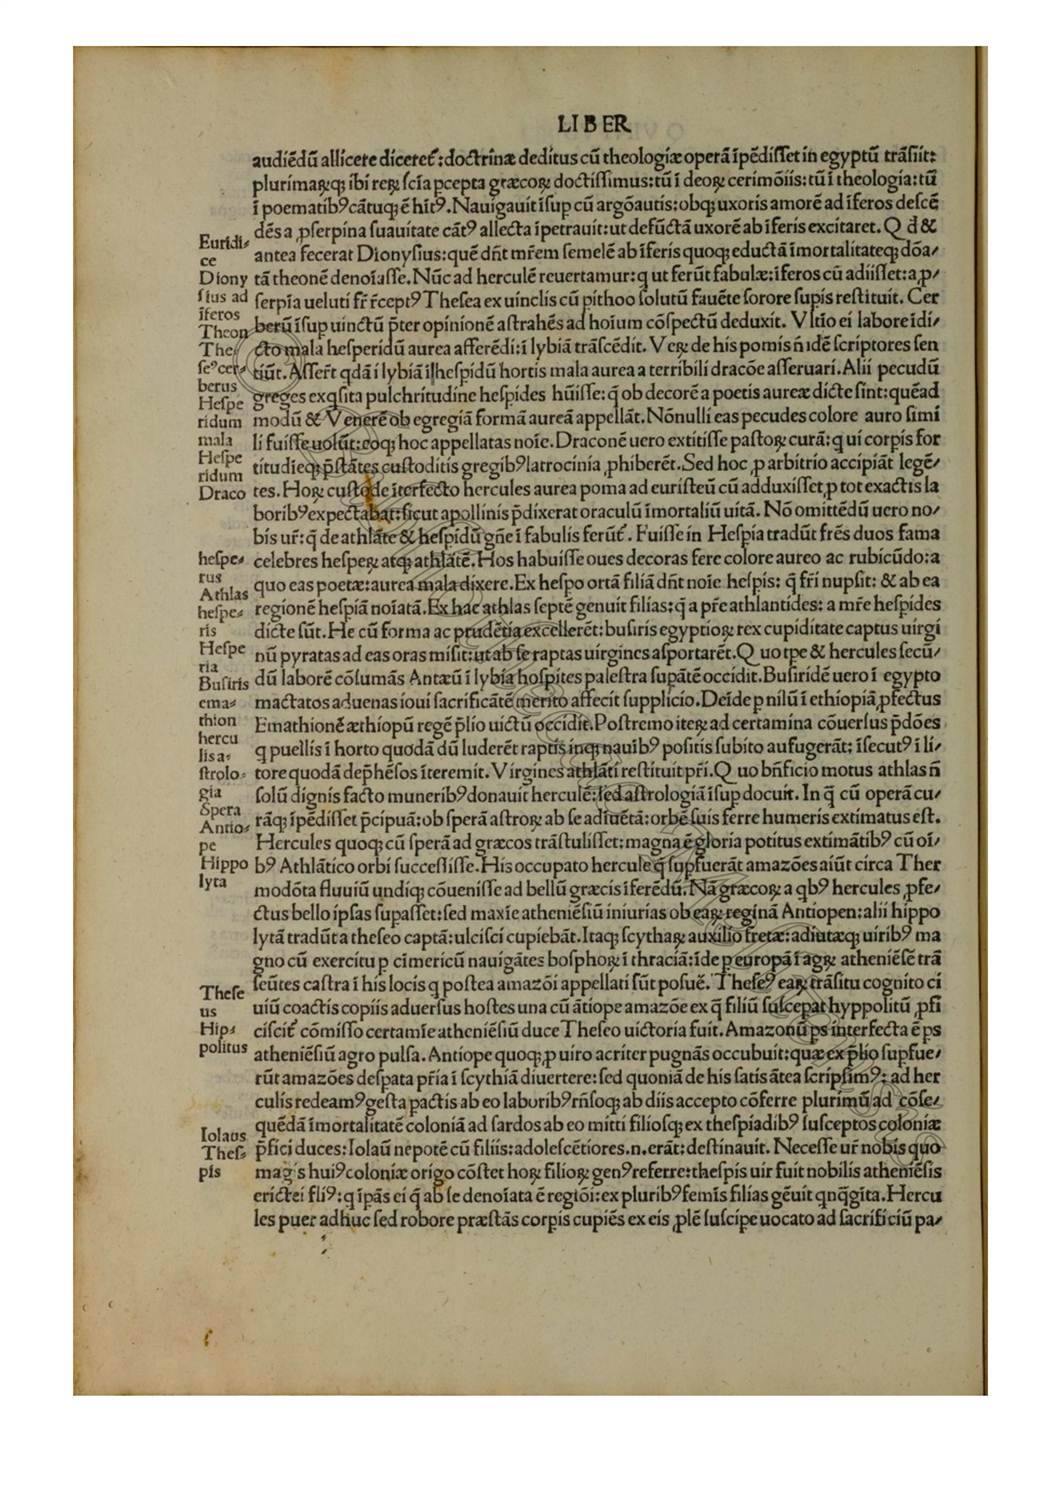 LIBER
audiēdū allicere diceret᷑: doctrinæ deditus cū theologiæ operā īpēdiſſet in egyptū trāſiit:
plurimaꝝq; ibi reꝝ ſcīa pcepta græcoꝝ doctiſſimus: tū ī deoꝝ cerimōiis: tū ī theologia: tū
ī poematibꝰ cātuq; ē hītꝰ. Nauigauit īſup cū argōautis: obq; uxoris amorē ad īferos deſcē
Euridi⸗
ce
dēs a ꝓſerpina ſuauitate cātꝰ allecta īpetrauit: ut defūctā uxorē ab īferis excitaret. Q d̄ &
antea fecerat Dionyſius: quē dn̄t mr̄em ſemelē ab īferis quoq; eductā īmortalitateq; dōa/
Diony
ſius ad
īferos
tā theonē denoīaſſe. Nūc ad herculē reuertamur: q ut ferūt fabulæ: īferos cū adiiſſet: a ꝓ/
ſerpīa ueluti fr̄ r̄ceptꝰ Theſea ex uinclis cū pithoo ſolutū fauēte ſorore ſupis reſtituit. Cer
Theon
berū īſup uinctū p̄ter opinionē aſtrahēs ad hoīum cōſpectū deduxit. Vltīo ei labore īdi/
The⸗
ſeꝰcer⸗
berus
cto mala heſperidū aurea afferēdi: ī lybiā trāſcēdit. Veꝝ de his pomis n̄ idē ſcriptores ſen
tiūt. Aſſerr̄t qdā ī lybiā ī heſpidū hortis mala aurea a terribili dracōe aſſeruari. Alii pecudū
Heſpe
ridum
mala
greges exqſita pulchritudine heſpides hūiſſe: q̄ ob decorē a poetis aureæ dicte ſint: quēad
modū & Venerē ob egregiā formā aureā appellāt. Nōnulli eas pecudes colore auro ſimi
li fuiſſe uolūt: eoq; hoc appellatas noīe. Draconē uero extitiſſe paſtoꝝ curā: q ui corpis for
Heſpe
ridum
Draco
titudieq; p̄ſtātes cuſtoditis gregibꝰ latrocinia ꝓhiberēt. Sed hoc ꝓ arbitrio accipiāt legē/
tes. Hoꝝ cuſtode īterfecto hercules aurea poma ad euriſteū cū adduxiſſet ꝓ tot exactis la
boribꝰ expectabat: ſicut apollinis p̄dixerat oraculū īmortaliū uitā. Nō omittēdū uero no/
bis ur̄: q̄ de athlāte & heſpidū gn̄e ī fabulis ferūt᷑. Fuiſſe in Heſpia tradūt fr̄es duos fama
heſpe⸗
rus
celebres heſpeꝝ atq; athlātē. Hos habuiſſe oues decoras fere colore aureo ac rubicūdo: a
Athlas
quo eas poetæ: aurea mala dixere. Ex heſpo ortā filiā dn̄t noīe heſpis: q̄ fr̄i nupſit: & ab ea
heſpe⸗
ris
regionē heſpiā noīatā. Ex hac athlas ſeptē genuit filias: q̄ a pr̄e athlantides: a mr̄e heſpides
dicte ſūt. He cū forma ac prudētia excellerēt: buſiris egyptioꝝ rex cupiditate captus uirgi
Heſpe
ria
nū pyratas ad eas oras miſit: ut ab ſe raptas uirgines aſportarēt. Q uo tpe & hercules ſecū/
Buſiris
dū laborē cōſumās Antæū ī lybia hoſpites paleſtra ſupātē occidit. Buſiridē uero ī egypto
ema⸗
thion
mactatos aduenas ioui ſacrificātē merito affecit ſupplicio. Deīde p nilū ī ethiopiā ꝓfectus
Emathionē æthiopū regē p̄lio uictū occidit. Poſtremo iteꝝ ad certamina cōuerſus p̄dōes
hercu
lis a⸗
ſtrolo⸗
gia
q puellis ī horto quodā dū luderēt raptis inq; nauibꝰ poſitis ſubito aufugerāt: īſecutꝰ ī li/
tore quodā dep̄hēſos īteremit. Virgines athlāti reſtituit pr̄i. Q uo bn̄ficio motus athlas n̄
ſolū dignis facto muneribꝰ donauit herculē: ſed aſtrologiā īſup docuit. In q̄ cū operā cu/
Spera
rāq; īpēdiſſet p̄cipuā: ob ſperā aſtroꝝ ab ſe adīuētā: orbē ſuis ferre humeris extimatus eſt.
Antio⸗
pe
Hercules quoq; cū ſperā ad græcos trāſtuliſſet: magna ē gloria potitus extimātibꝰ cū oī/
Hippo
lyta
bꝰ Athlātico orbi ſucceſſiſſe. His occupato hercule q̄ ſupfuerāt amazōes aiūt circa Ther
modōta fluuiū undiq; cōueniſſe ad bellū græcis īferēdū. Nā græcoꝝ a qbꝰ hercules ꝓfe/
ctus bello ipſas ſupaſſet: ſed maxīe atheniēſiū iniurias ob eaꝝ reginā Antiopen: alii hippo
lytā tradūt a theſeo captā: ulciſci cupiebāt. Itaq; ſcythaꝝ auxilio fretæ: adiutæq; uiribꝰ ma
gno cū exercitu p cīmericū nauigātes boſphoꝝ ī thraciā: īde p europā ī agꝝ atheniēſē trā
ſeūtes caſtra ī his locis q poſtea amazōi appellati ſūt poſuē. Theſeꝰ eaꝝ trāſitu cognito ci
Theſe
us
uiū coactis copiis aduerſus hoſtes una cū ātiope amazōe ex q̄ filiū ſuſcepat hyppolitū ꝓfi
Hip⸗
politus
ciſcit᷑ cōmiſſo certamīe atheniēſiū duce Theſeo uictoria fuit. Amazonū ps interfecta ē ps
atheniēſiū agro pulſa. Antiope quoq; ꝓ uiro acriter pugnās occubuit: quæ ex p̄lio ſupfue/
rūt amazōes deſpata pr̄ia ī ſcythiā diuertere: ſed quoniā de his ſatis ātea ſcripſimꝰ: ad her
culis redeamꝰ geſta pactis ab eo laboribꝰ rn̄ſoq; ab diis accepto cōferre plurimū ad cōſe/
quēdā īmortalitatē coloniā ad ſardos ab eo mitti filioſq; ex theſpiadibꝰ ſuſceptos coloniæ
Iolaus
Theſ⸗
pis
p̄fici duces: Iolaū nepotē cū filiis: adoleſcētiores .n. erāt: deſtinauit. Neceſſe ur̄ nobis quo
magis huiꝰ coloniæ origo cōſtet hoꝝ filioꝝ genꝰ referre: theſpis uir fuit nobilis atheniēſis
erictei fliꝰ: q īpās ei q̄ ab ſe denoīata ē regiōi: ex pluribꝰ femīs filias gēuit qnqgīta. Hercu
les puer adhuc ſed robore præſtās corpis cupiēs ex eis ꝓlē ſuſcipe uocato ad ſacrificiū pa/